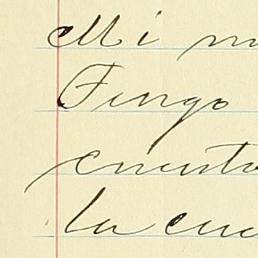 Mi m
Tengo
cuenta
la cue